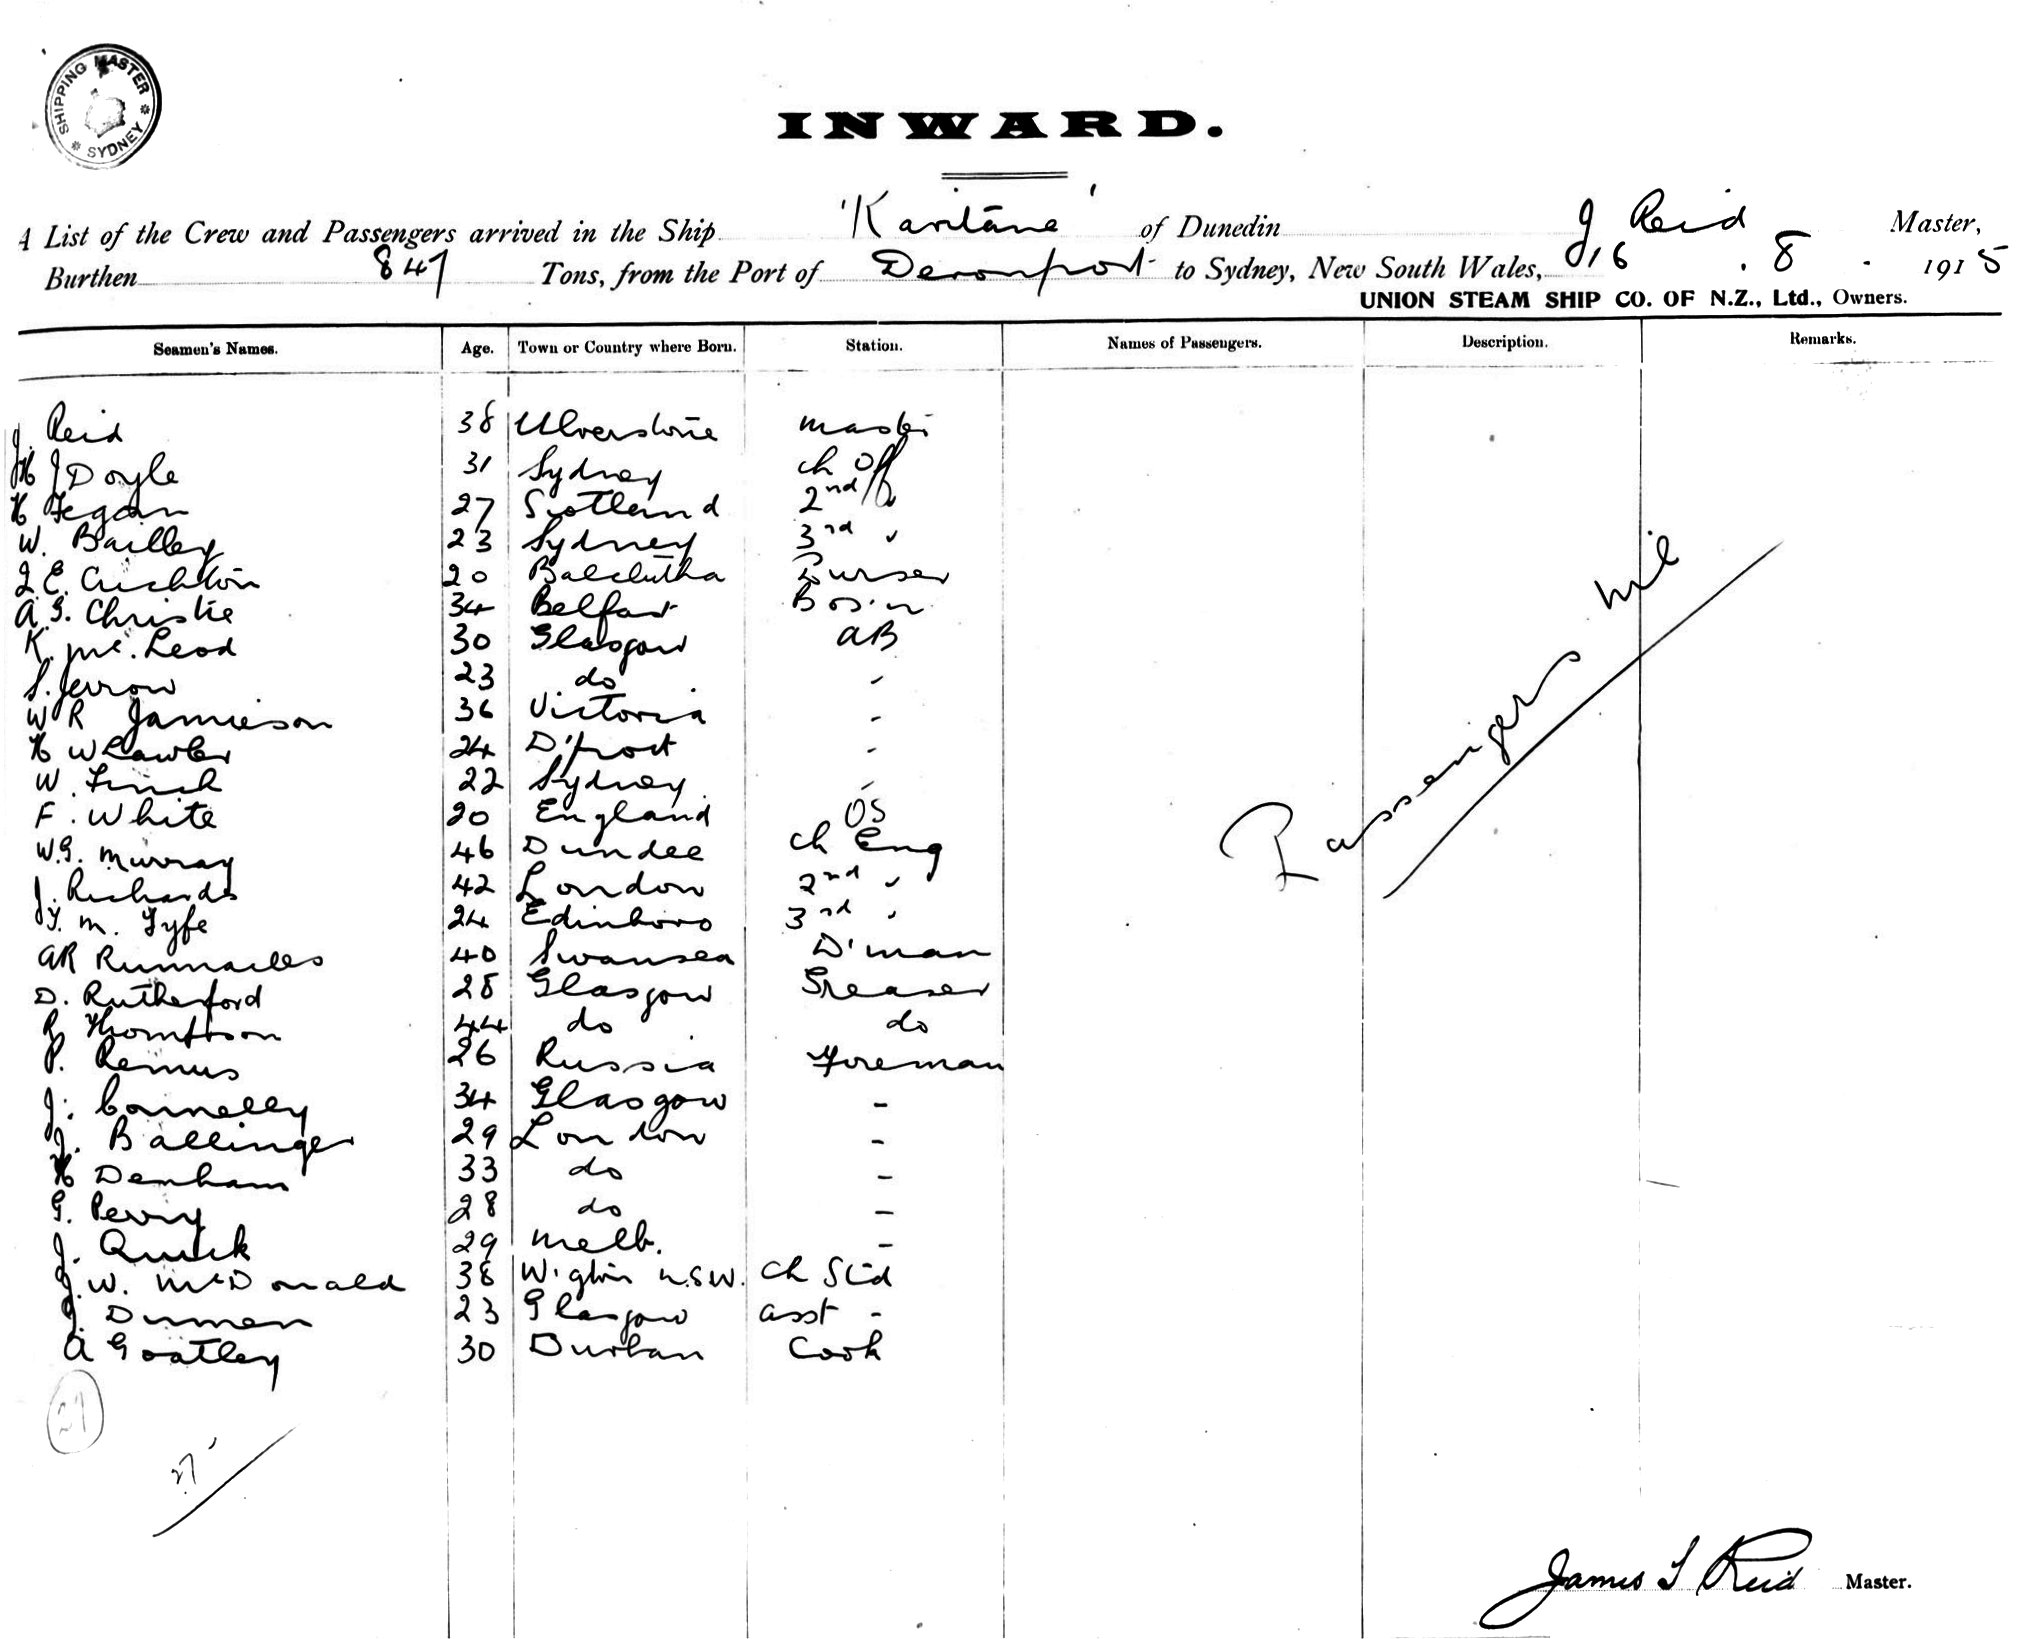 SHIPPING MASTER
SYDNEY
INWARD.
A List of the Crew and Passengers arrived in the Ship 'Karitane' of Dunedin J Reid Master,
Burthen 847 Tons, from the Port of Devonport to Sydney, New South Wales, 16 . 8 . 1915
UNION STEAM SHIP CO. OF N.Z., Ltd., Owners.
Seamen's Names. Age. Town or Country where Born. Station. Names of Passengers. Description. Remarks.
J. Reid 38 Ulverstone Master
J Doyle 31 Sydney Ch Off
H Fegan 27 Scotland 2nd "
W. Bailley 23 Sydney 3rd "
J. E. Crichton 20 Balclutha Purser
A. G. Christie 34 Belfast Bos'n
K. McLeod 30 Glasgow AB
S. Jerrow 23 do "
W R Jamieson 36 Victoria "
H W Lawler 24 D'port "
W. Finch 22 Sydney "
F. White 20 England OS
W. G. Murray 46 Dundee Ch Eng
J. Richards 42 London 2nd "
T. M. Fyfe 24 Edinboro 3rd "
AR Runnacles 40 Swansea D'man
D. Rutherford 28 Glasgow Greaser
R Thompson 44 do do
P. Remus 26 Russia Fireman
J. Connelly 34 Glasgow "
J. Ballinger 29 London "
H Denham 33 do "
G. Perry 28 do "
J. Quirk 29 Melb. "
J. W. McDonald 38 W'gton N.S.W. Ch Std
J. Dunnen 23 Glasgow Asst "
A Goatley 30 Durban Cook
Passengers Nil
27
27
James T Reid Master.